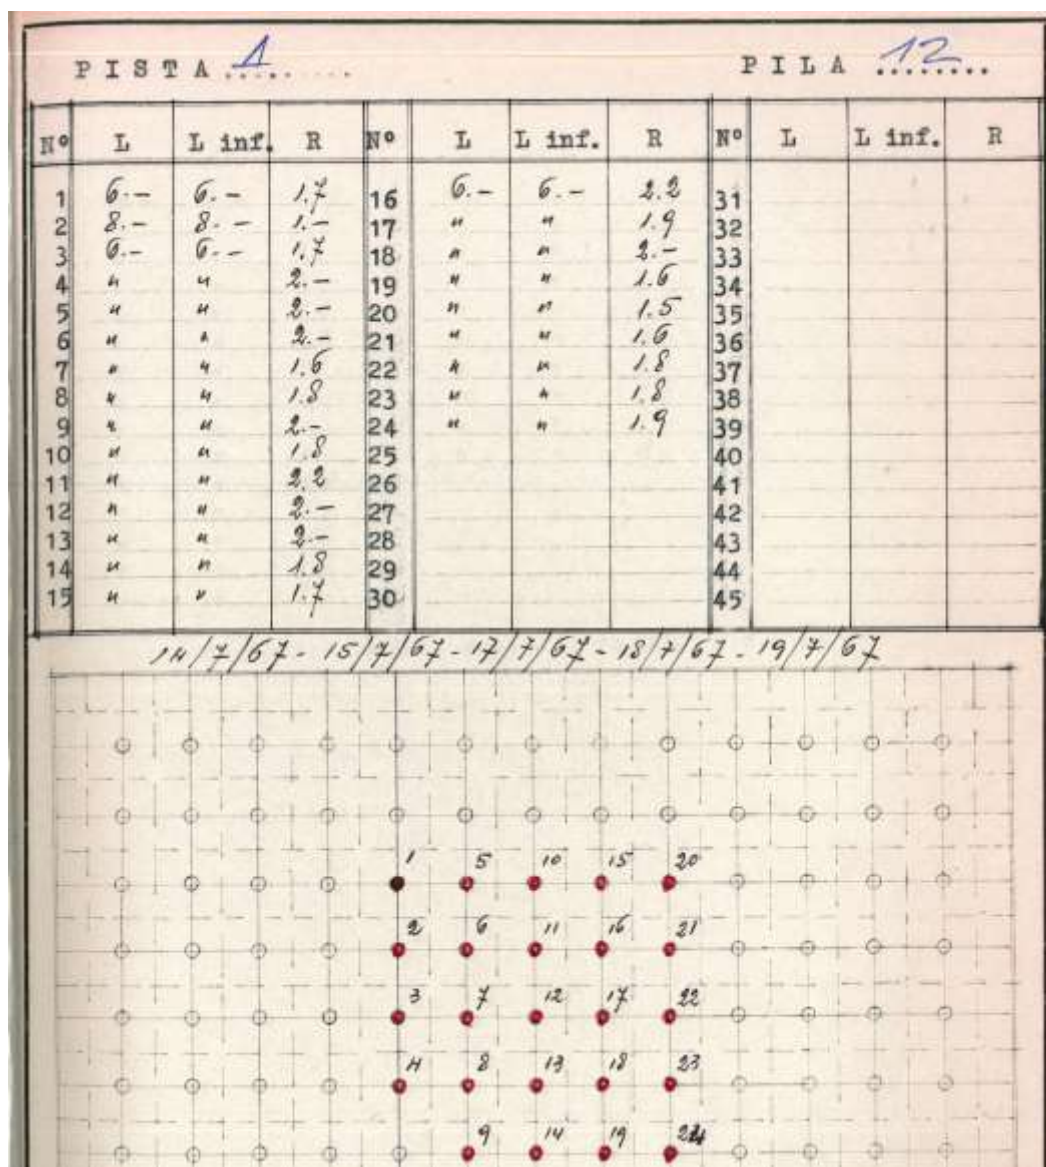 PISTA 1 PILA 12
Nº L L inf. R Nº L L inf. R Nº L L inf. R
1 6.- 6.- 1.7 16 6.- 6.- 2.2 31
2 8.- 8.- 1.- 17 " " 1.9 32
3 6.- 6.- 1.7 18 " " 2.- 33
4 " " 2.- 19 " " 1.6 34
5 " " 2.- 20 " " 1.5 35
6 " " 2.- 21 " " 1.6 36
7 " " 1.6 22 " " 1.8 37
8 " " 1.8 23 " " 1.8 38
9 " " 2.- 24 " " 1.9 39
10 " " 1.8 25 40
11 " " 2.2 26 41
12 " " 2.- 27 42
13 " " 2.- 28 43
14 " " 1.8 29 44
15 " " 1.7 30 45
14/7/67 - 15/7/67 - 17/7/67 - 18/7/67 - 19/7/67
1 5 10 15 20
2 6 11 16 21
3 7 12 17 22
4 8 13 18 23
9 14 19 24